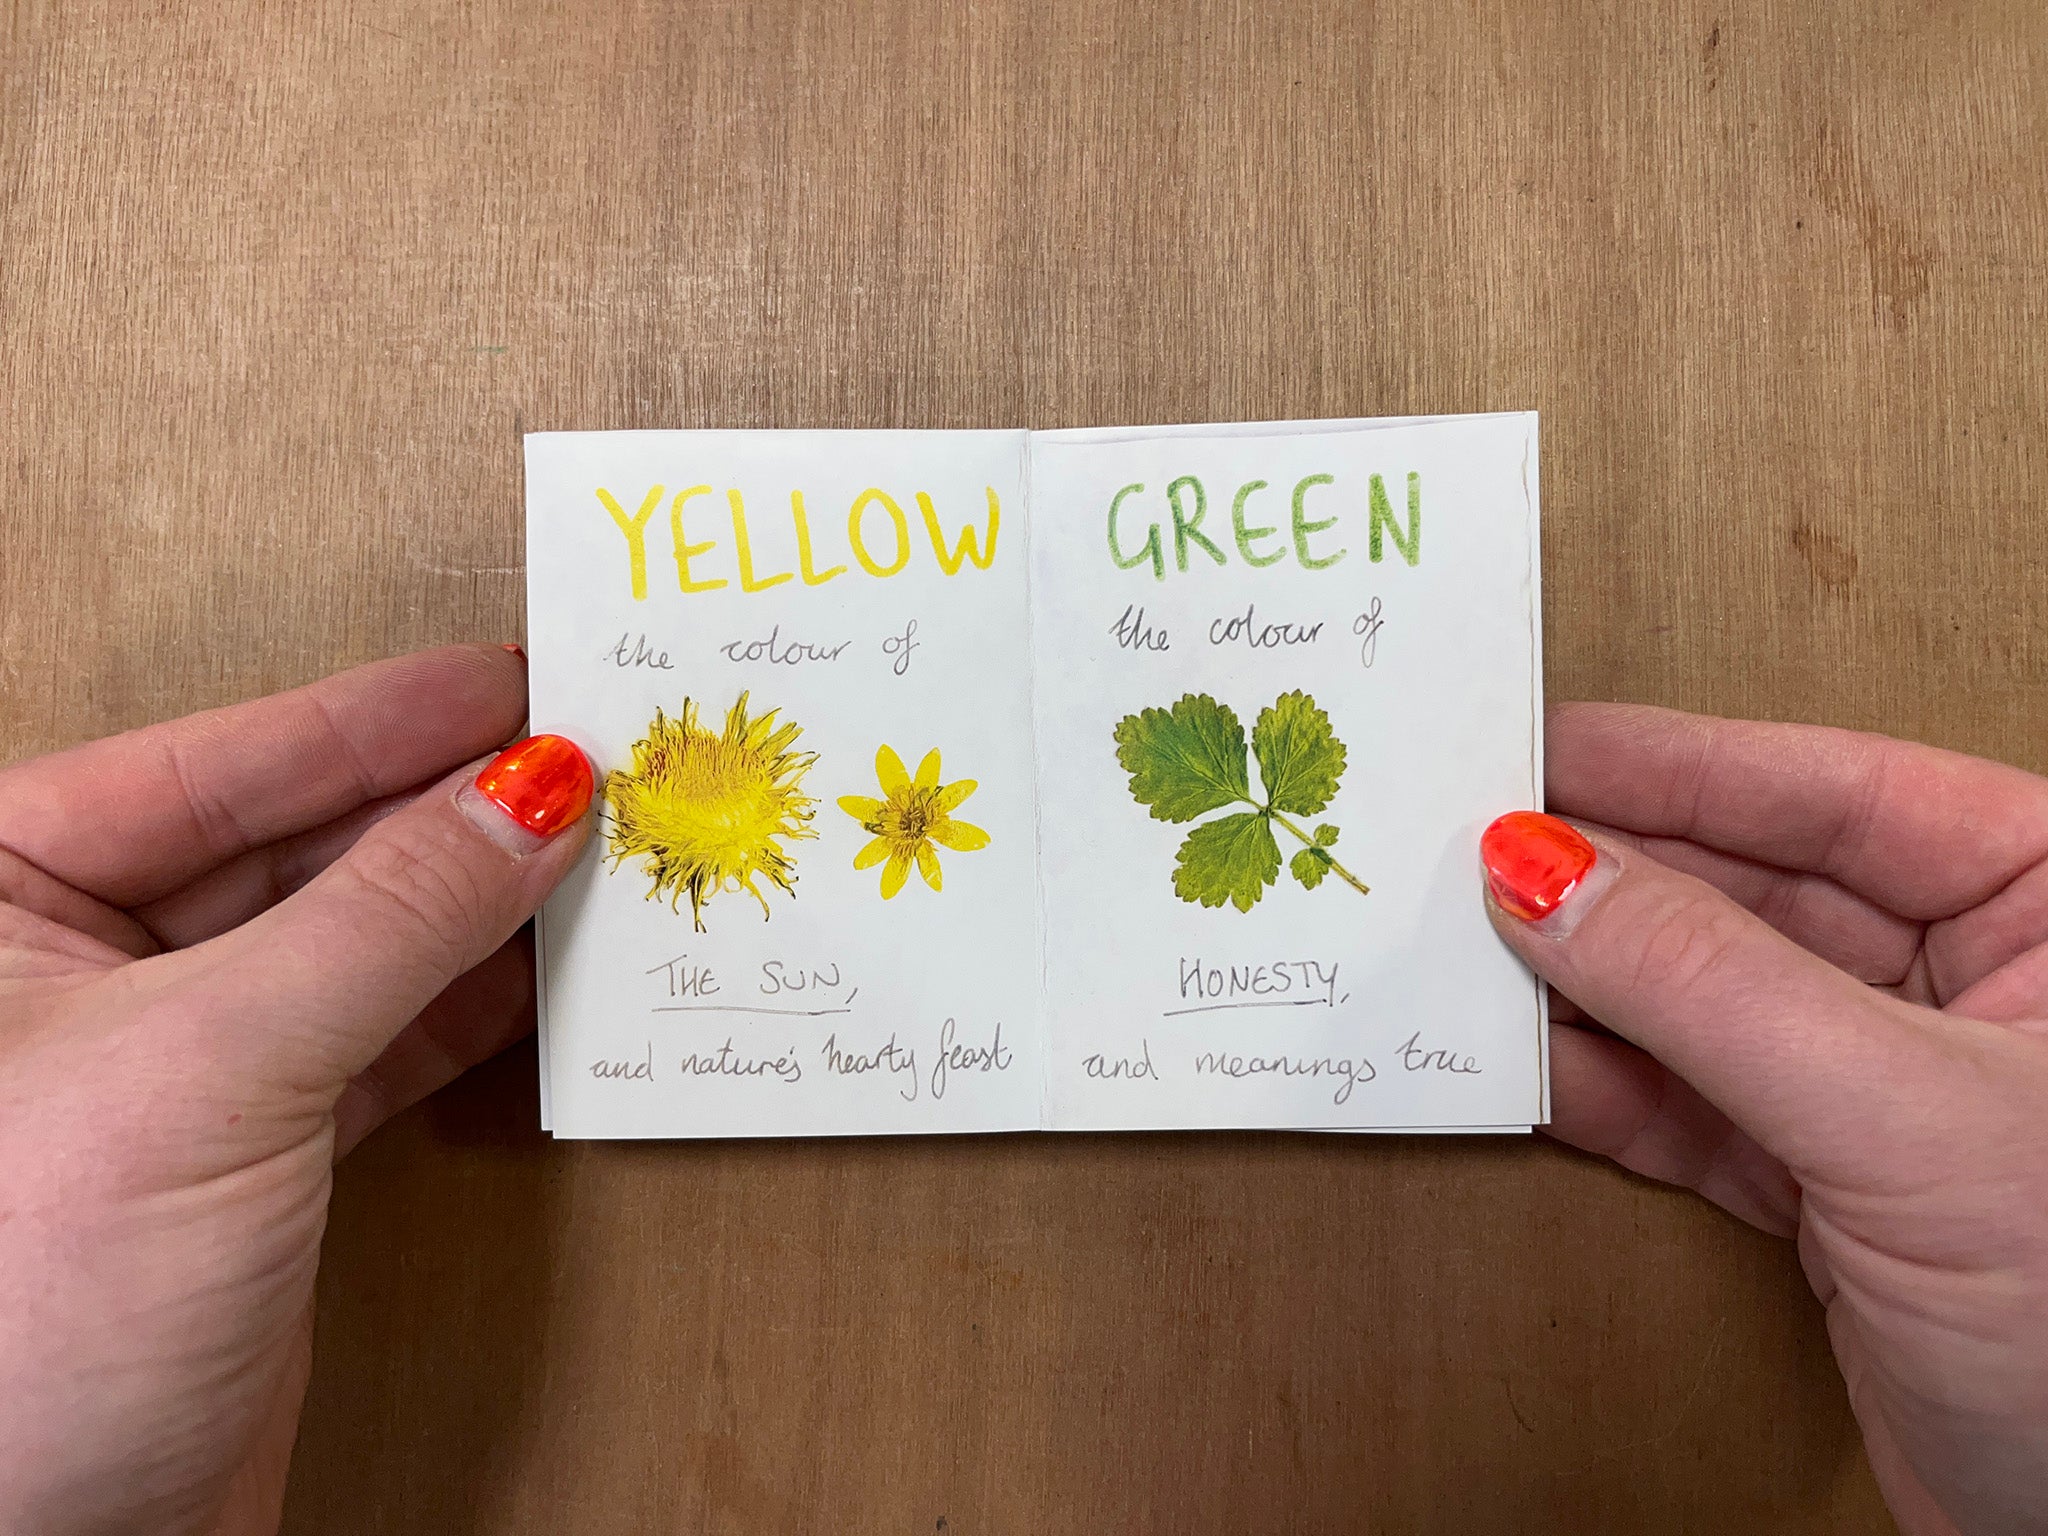 YELLOW
the colour of
THE SUN,
and nature's hearty feast
GREEN
the colour of
HONESTY,
and meanings true